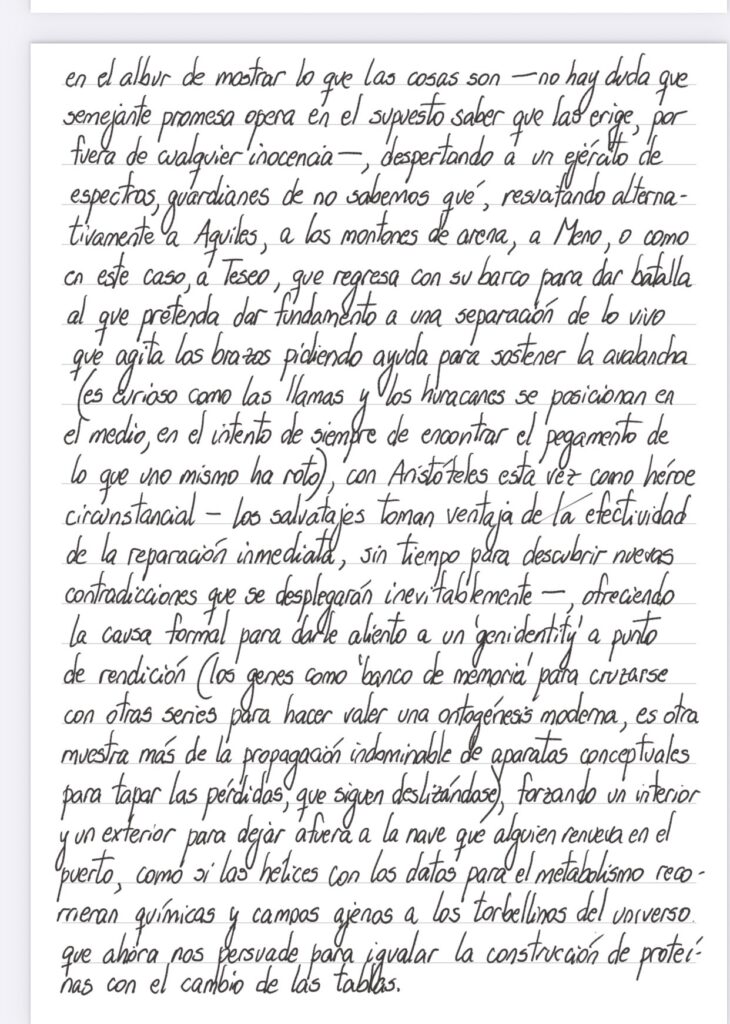 en el albur de mostrar lo que las cosas son —no hay duda que
semejante promesa opera en el supuesto saber que las erige, por
fuera de cualquier inocencia—, despertando a un ejército de
espectros, guardianes de no sabemos qué, rescatando alterna-
tivamente a Aquiles, a los montones de arena, a Meno, o como
en este caso, a Teseo, que regresa con su barco para dar batalla
al que pretenda dar fundamento a una separación de lo vivo
que agita los brazos pidiendo ayuda para sostener la avalancha
(es curioso como las llamas y los huracanes se posicionan en
el medio, en el intento de siempre de encontrar el pegamento de
lo que uno mismo ha roto), con Aristóteles esta vez como héroe
circunstancial — los salvatajes toman ventaja de la efectividad
de la reparación inmediata, sin tiempo para descubrir nuevas
contradicciones que se desplegarán inevitablemente —, ofreciendo
la causa formal para darle aliento a un 'genidentity' a punto
de rendición (los genes como 'banco de memoria' para cruzarse
con otras series para hacer valer una ontogénesis moderna, es otra
muestra más de la propagación indominable de aparatos conceptuales
para tapar las pérdidas, que siguen deslizándose), forzando un interior
y un exterior para dejar afuera a la nave que alguien renueva en el
puerto, como si las hélices con los datos para el metabolismo reco-
rrieran químicas y campos ajenos a los torbellinos del universo
que ahora nos persuade para igualar la construcción de proteí-
nas con el cambio de las tablas.